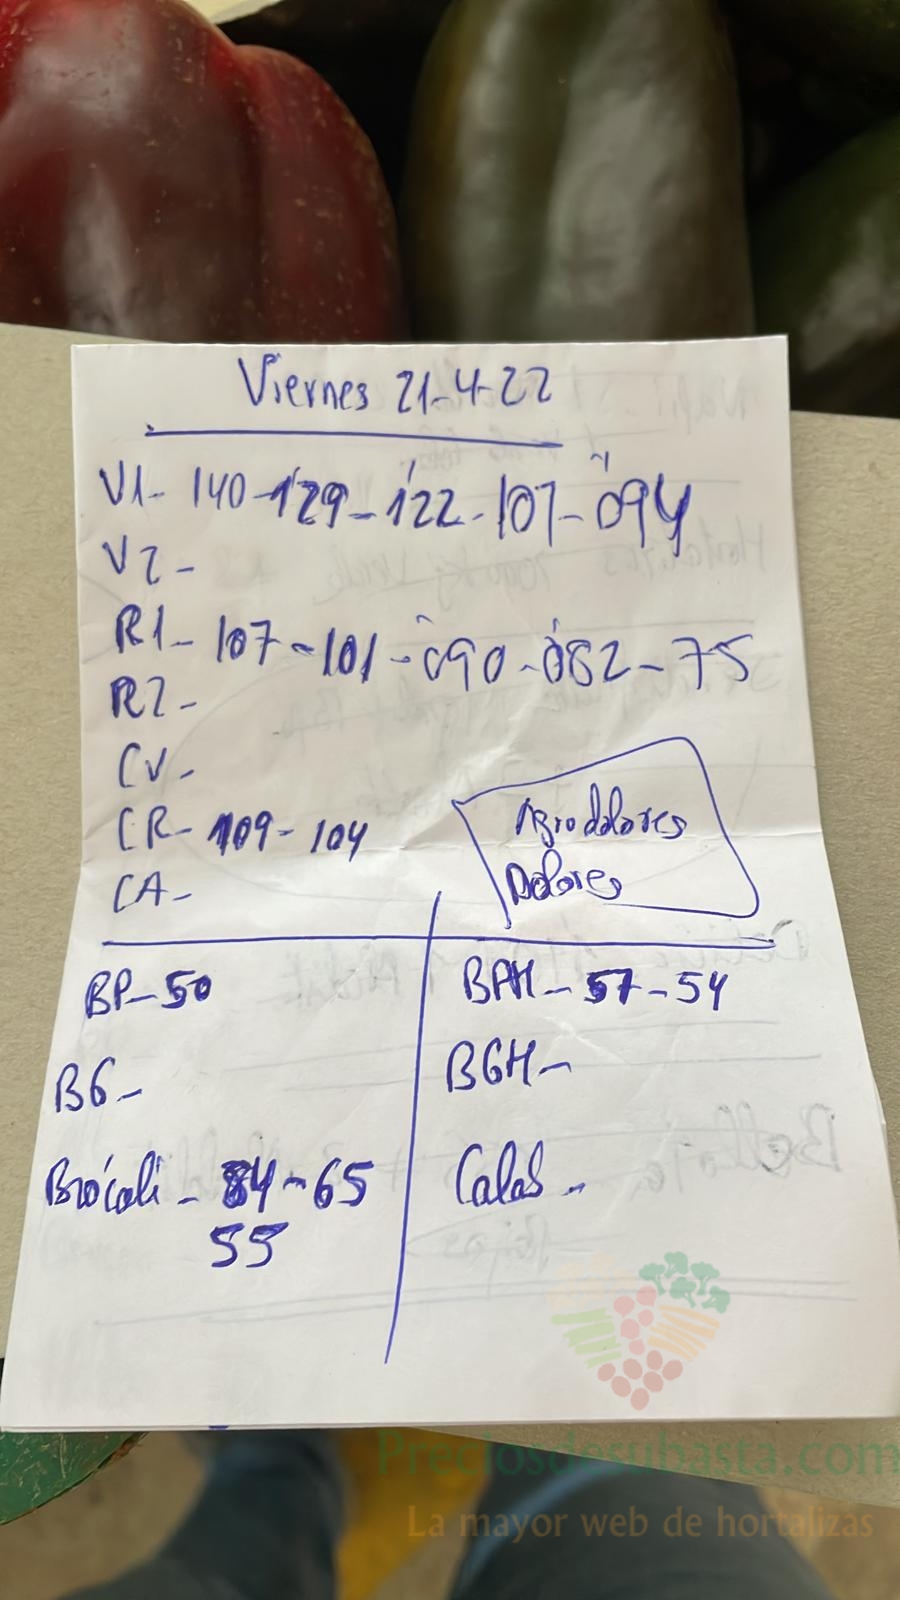 Viernes 21-4-22
V1- 140-129-122-107-094
V2-
R1- 107-101-090-082-75
R2-
CV-
CR- 109-104
CA-
Agrodolores
Dolores
BP-50
BPH-57-54
BG-
BGH-
Brócoli - 84-65
55
Calab -
Preciosdesubasta.com
La mayor web de hortalizas